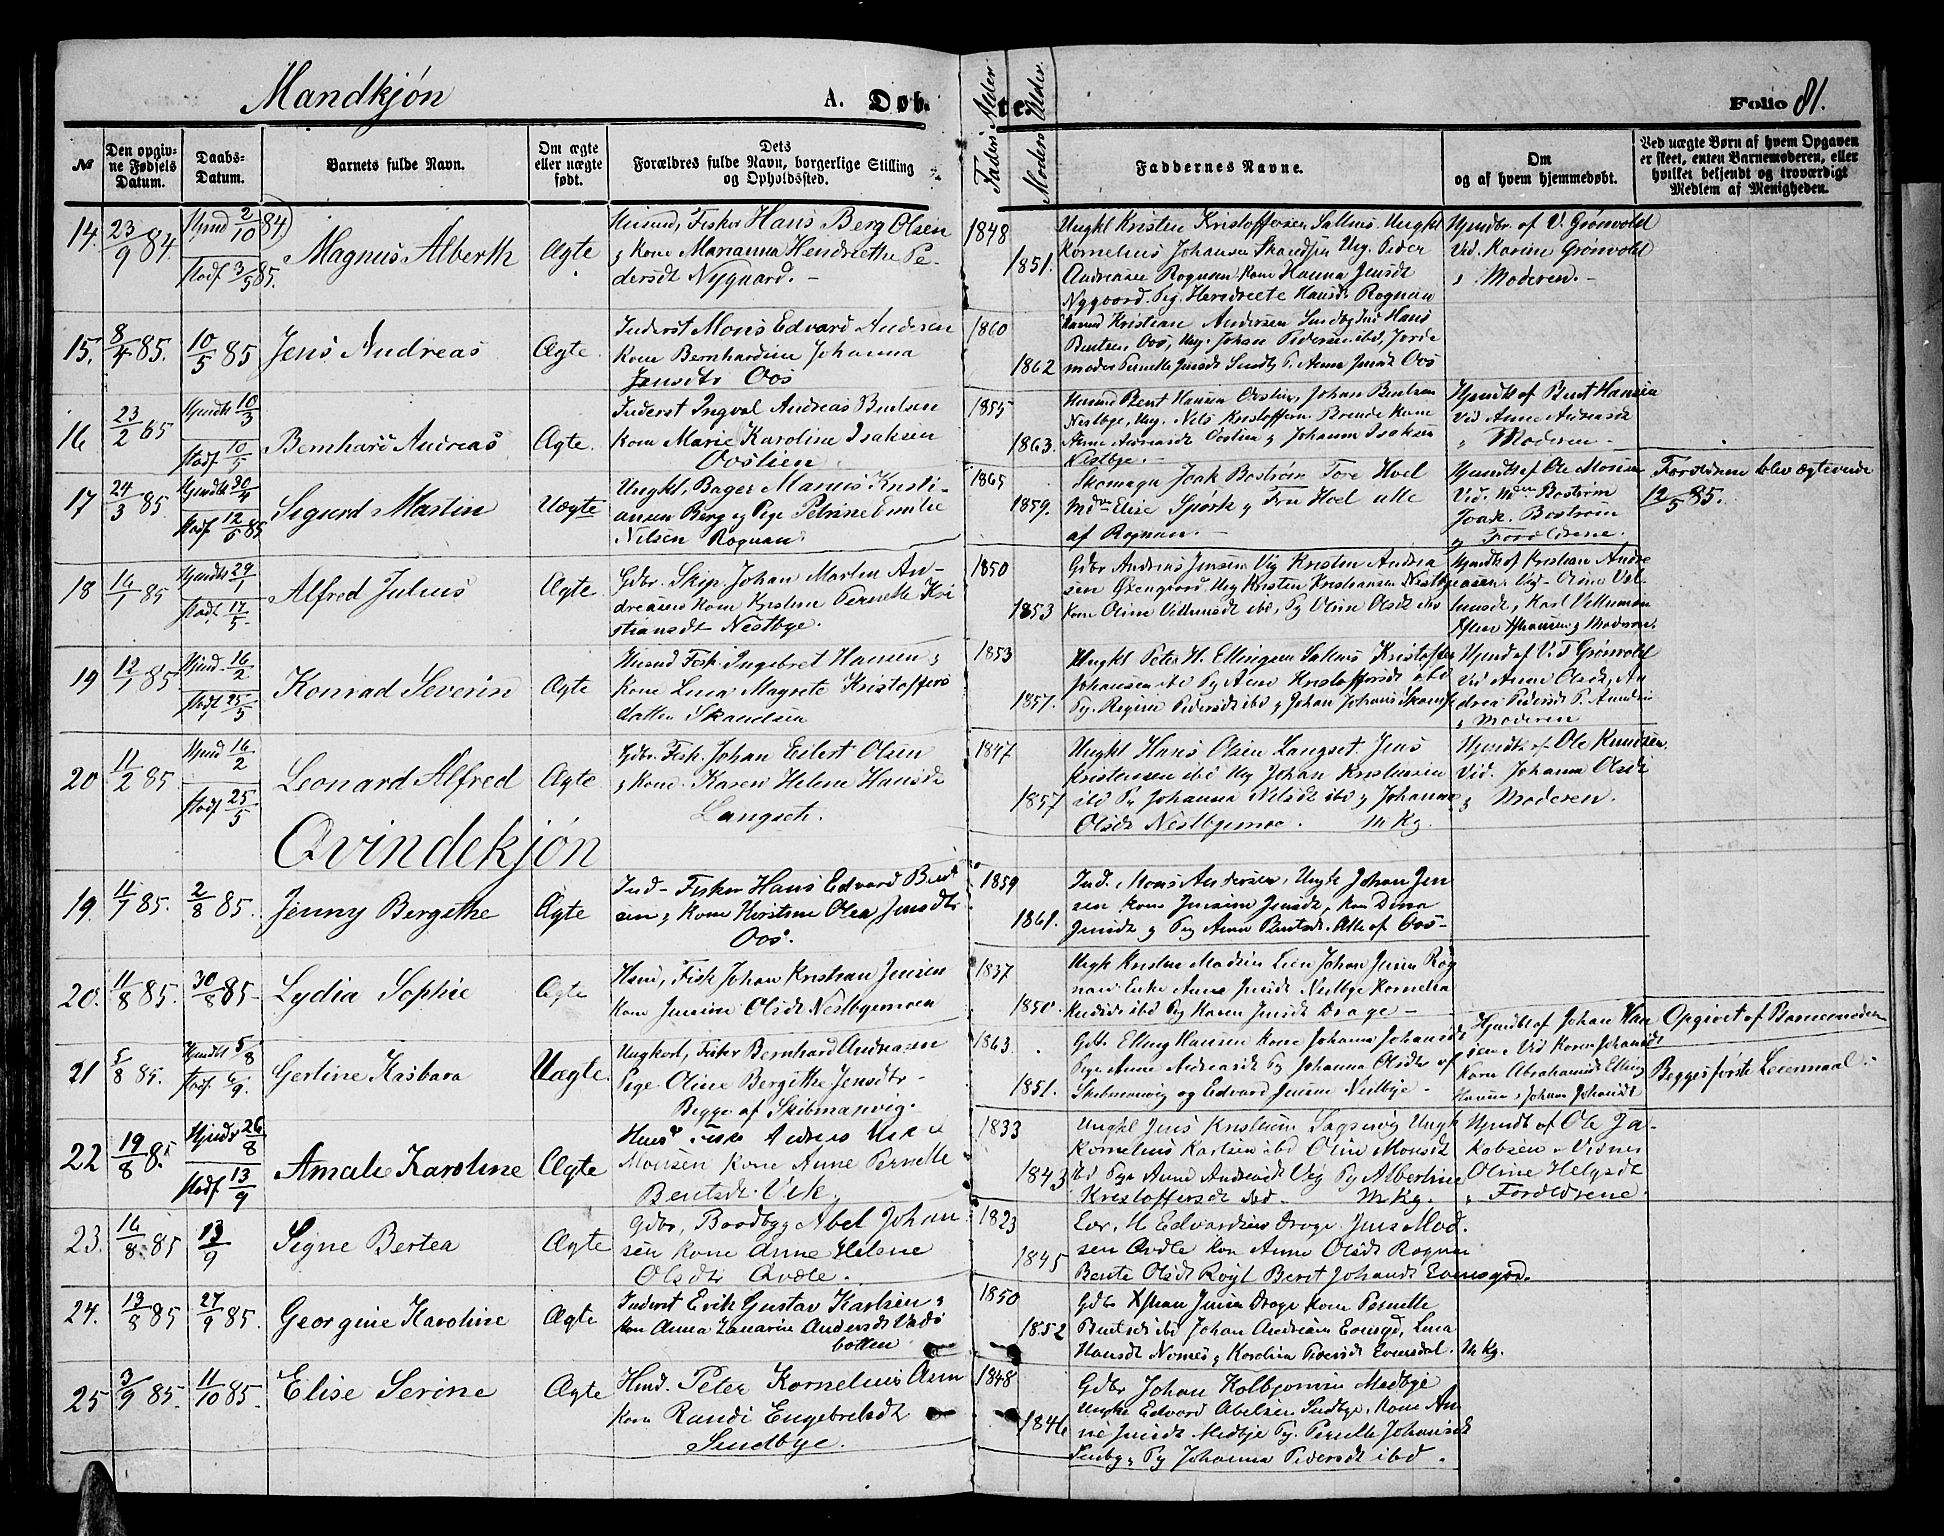 Mandkjön A. Døbte. Folio 81.
№
Den opgivne Fødsels Datum.
Daabs-Datum.
Barnets fulde Navn.
Om ægte eller uægte født.
Dets Forældres fulde Navn, borgerlige Stilling og Opholdssted.
Faders Alder
Moders Alder.
Faddernes Navne.
Om og af hvem hjemmedøbt.
Ved uægte Børn af hvem Opgaven er skeet, enten Barnemoderen, eller hvilket betjendt og troværdigt Medlem af Menigheden.
14. 23/9 84. Hjmd 2/10 84 Stadf 3/5 85. Magnus Alberth Ægte
Huusd, Fisker Hans Berg Olsen
g Kone Marianna Hendriethe Pe-
dersdt Nygaard.-
1848
1851.
Ungkl Kristen Kristoffersen Saltnes Ungkl
Kornelius Johansen Skandsen Ung. Peder
Andreasen Rognan Kone Hanna Jensdt
Nygaard. Pig. Hendreete Hansdt Rognan
Hjmdbt. af V. Grønvold
Vid. Karine Grønvold
g Moderen.-
15. 8/4 85. 10/5 85 Jens Andreas Ægte.
Inderst Mons Edvard Andersen
Kone Bernhardine Johanna
Jensdtr Oos
1860
1862
Kristian Andersen Sundby Ind Hans
Bentsen, Oos, Ung. Johan Pedersen ibd, Jorde
moder Pernelle Jensdt Sundby P. Anne Jensdt Oos
16 23/2 85 Hjmdbt 10/3 Stadf 10/5 Bernhard Andreas Ægte.
Inderst Ingval Andreas Bentsen
Kone Marie Karoline Isaksen
Ooslien
1855
1863.
Huusmd Bent Hansen Ooslien, Johan Bentsen
Nestbye, Ung. Nils Kristoffersen Brende Kone
Anne Andreasdt Ooslien g Johanna Isaksen
Nestbye.-
Hjmdbt af Bent Hansen
Vid Anne Andreasdt
g Moderen-
17 24/3 85. Hjmdbt 30/4 Stadf 12/5 85 Sigurd Martin Uægte
Ungkl, Bager Marius Kristi-
ansen Berg og Pige Petrine Emilie
Nilsen Rognan.
1865
1859.
Skomager Joak Bostrøm Tore Hoel
Md. Elise Spørk g Fru Hoel alle
af Rognan.-
Hjmdbt af Ole Monsen
Vid. Bostrøm
Joak. Bostrøm
g Forældrene.
Forældrene blev ægteviede
12/5 85.
18 16/1 85 Hjmdbt 29/1 Stadf 17/5. Alfred Julius Ægte
Gdbr. Skip. Johan Martin An-
dreasen Kone Kristine Pernelle Kri
stiansdt Nestbye.
1850
1853
Gdbr Andreas Jensen Vig Kristen Andrea
sen Øxengaard Ung Kristen Kristiansen Nestbye
Kone Oline Villumsdt ibd, Pg Oline Olsdt ibd
Hjmdbt af Kristian Andre
asen. Vig. Oline Vil-
lumsdt, Karl Villumsen
g Moderen.
19 12/1 85 Hjmd. 16/2 Stadf 25/5 Konrad Severin Ægte
Huusd Fisk. Ingebret Hansen g
Kone Lina Magrete Kristoffers
datter Skandsen
1853
1857.
Ungkl Peter H. Ellingsen Saltnes Kristoffer
Johansen ibd Pg Anne Kristoffersdt ibd
Pg. Regine Pedersdt ibd g Johan Johansen Skandse
Hjmd af V. T Grønvold
Vid Anne Olsdt, An
drea Pedersdt P. Amdsen
g Moderen
20 11/2 85. Hjmd 16/2 Stadf 25/5 Leonard Alfred Ægte
Gdbr. Fisk. Johan Eilert Olsen
g Kone. Karen Helene Hansdt
Langset.
1847
1857
Ungkl Hans Olsen Langset. Jens
Kristensen ibd Ung Johan Kristensen
ibd Pg Johanna Nilsdt ibd g Johanna
Olsdt Nestbyemoe. M Kg.
Hjmdt af Ole Knudsen
Vid. Johanna Olsdt
g Moderen.
Qvindekjön
19. 11/7 85. 2/8 85. Jenny Bergithe Ægte
Ind- Fisker Hans Edvard Bent
sen g Kone Kirstine Olea Jensdtr
Oos.
1859
1861.
Ind. Mons Andersen, Ungk Johan Jen
sen Kone Jensine Jensdt, Kon Dina
Jensdt g Pg Anne Bentsdt. Alle af Oos-
20. 11/8 85. 30/8 85- Lydia Sophie Ægte
Husmd, Fisk Johan Kristian Jensen
Kone Jensine Olsdt Nestbyemoen
1837
1850.
Ungk Kristen Madsen Lien Johan Jensen Rog
nan Enke Anne Jensdt Nestbye Kornelia
ibd Pg Karen Jensdt Drage-
21 5/8 85. Hjmdbt 5/8 Stadf 6/9. Gerline Kasbara Uægte.
Ungkarl, Fisker Bernhard Andreasen
Pige Oline Bergithe Jensdtr-
Begge af Skibmansvig.
1863
1851.
Gdbr Elling Hansen Kone Johanna Johansdt
Pige Anne Andreasdt Pg Johanna Olsdt af
Skibmanvig og Edvard Jensen Nestbye-
Hjmdbt af Johan Han
sen. Vid Karen Johansdt
Karn Abrahamsdt Elling
Hansen, Johan Johansdt
Opgivet af Barnemoderen
Begges første Leiermaal.-
22 19/8 85 Hjmdbt 26/8 Stadf 13/9 Amalie Karoline Ægte
Huusd Fisker Andreas
Monsen Kone Anne Pernelle
Bentsdt Vik
1833
1843
Ungkl Jens Kristensen Sagervig Ungk
Kornelius Karlsen ibd Oline Monsdt
ibd Pge Anne Andreasdt Vig Pg Albertine
Kristoffersdt ibd. M Kg.
Hjmdt af Ole Ja-
kobsen. Vidnes
Oline Helgesdt
g Forældrene
23. 16/8 85 13/9 Signe Bertea Ægte
Gdbr, Baadbyg Abel Johan
sen Kone Anne Helene
Olsdtr Qvæle.
1823
1845
Evr. M Edvardsen Drage. Jens Mad.
sen Qvæle Kon Anne Olsdt Rognan
Berite Olsdt Røyl Beret Johansdt Evensgrd.
24. 13/8 85 27/9 85. Georgine Karoline Ægte
Inderst Erik Gustav Karlsen g
Kon Anna Zanarine Andersdt Vads
botten
1850
1852
Gdbr Xstian Jensen Drage Kone Pernelle
Bentsdt ibd Johan Andreasen Evensgd, Lina
Hansdt Nornes g Karolina Pedersdt Evensdal. M Kg.
25 3/9 85. 11/10 85. Elise Serine Ægte
Husd. Peter Kornelius Arn
Kone Randi Engebretsdt
Sundbye.
1848
1846
Gdbr Johan Kolbjørnsen Medbye
Ungkl Edvard Abelsen Sundbye, Kone An
ne Jensdt Medbye Pg. Pernille Johansdt
Sundby, Pg Johanna Pedersdt ibd.